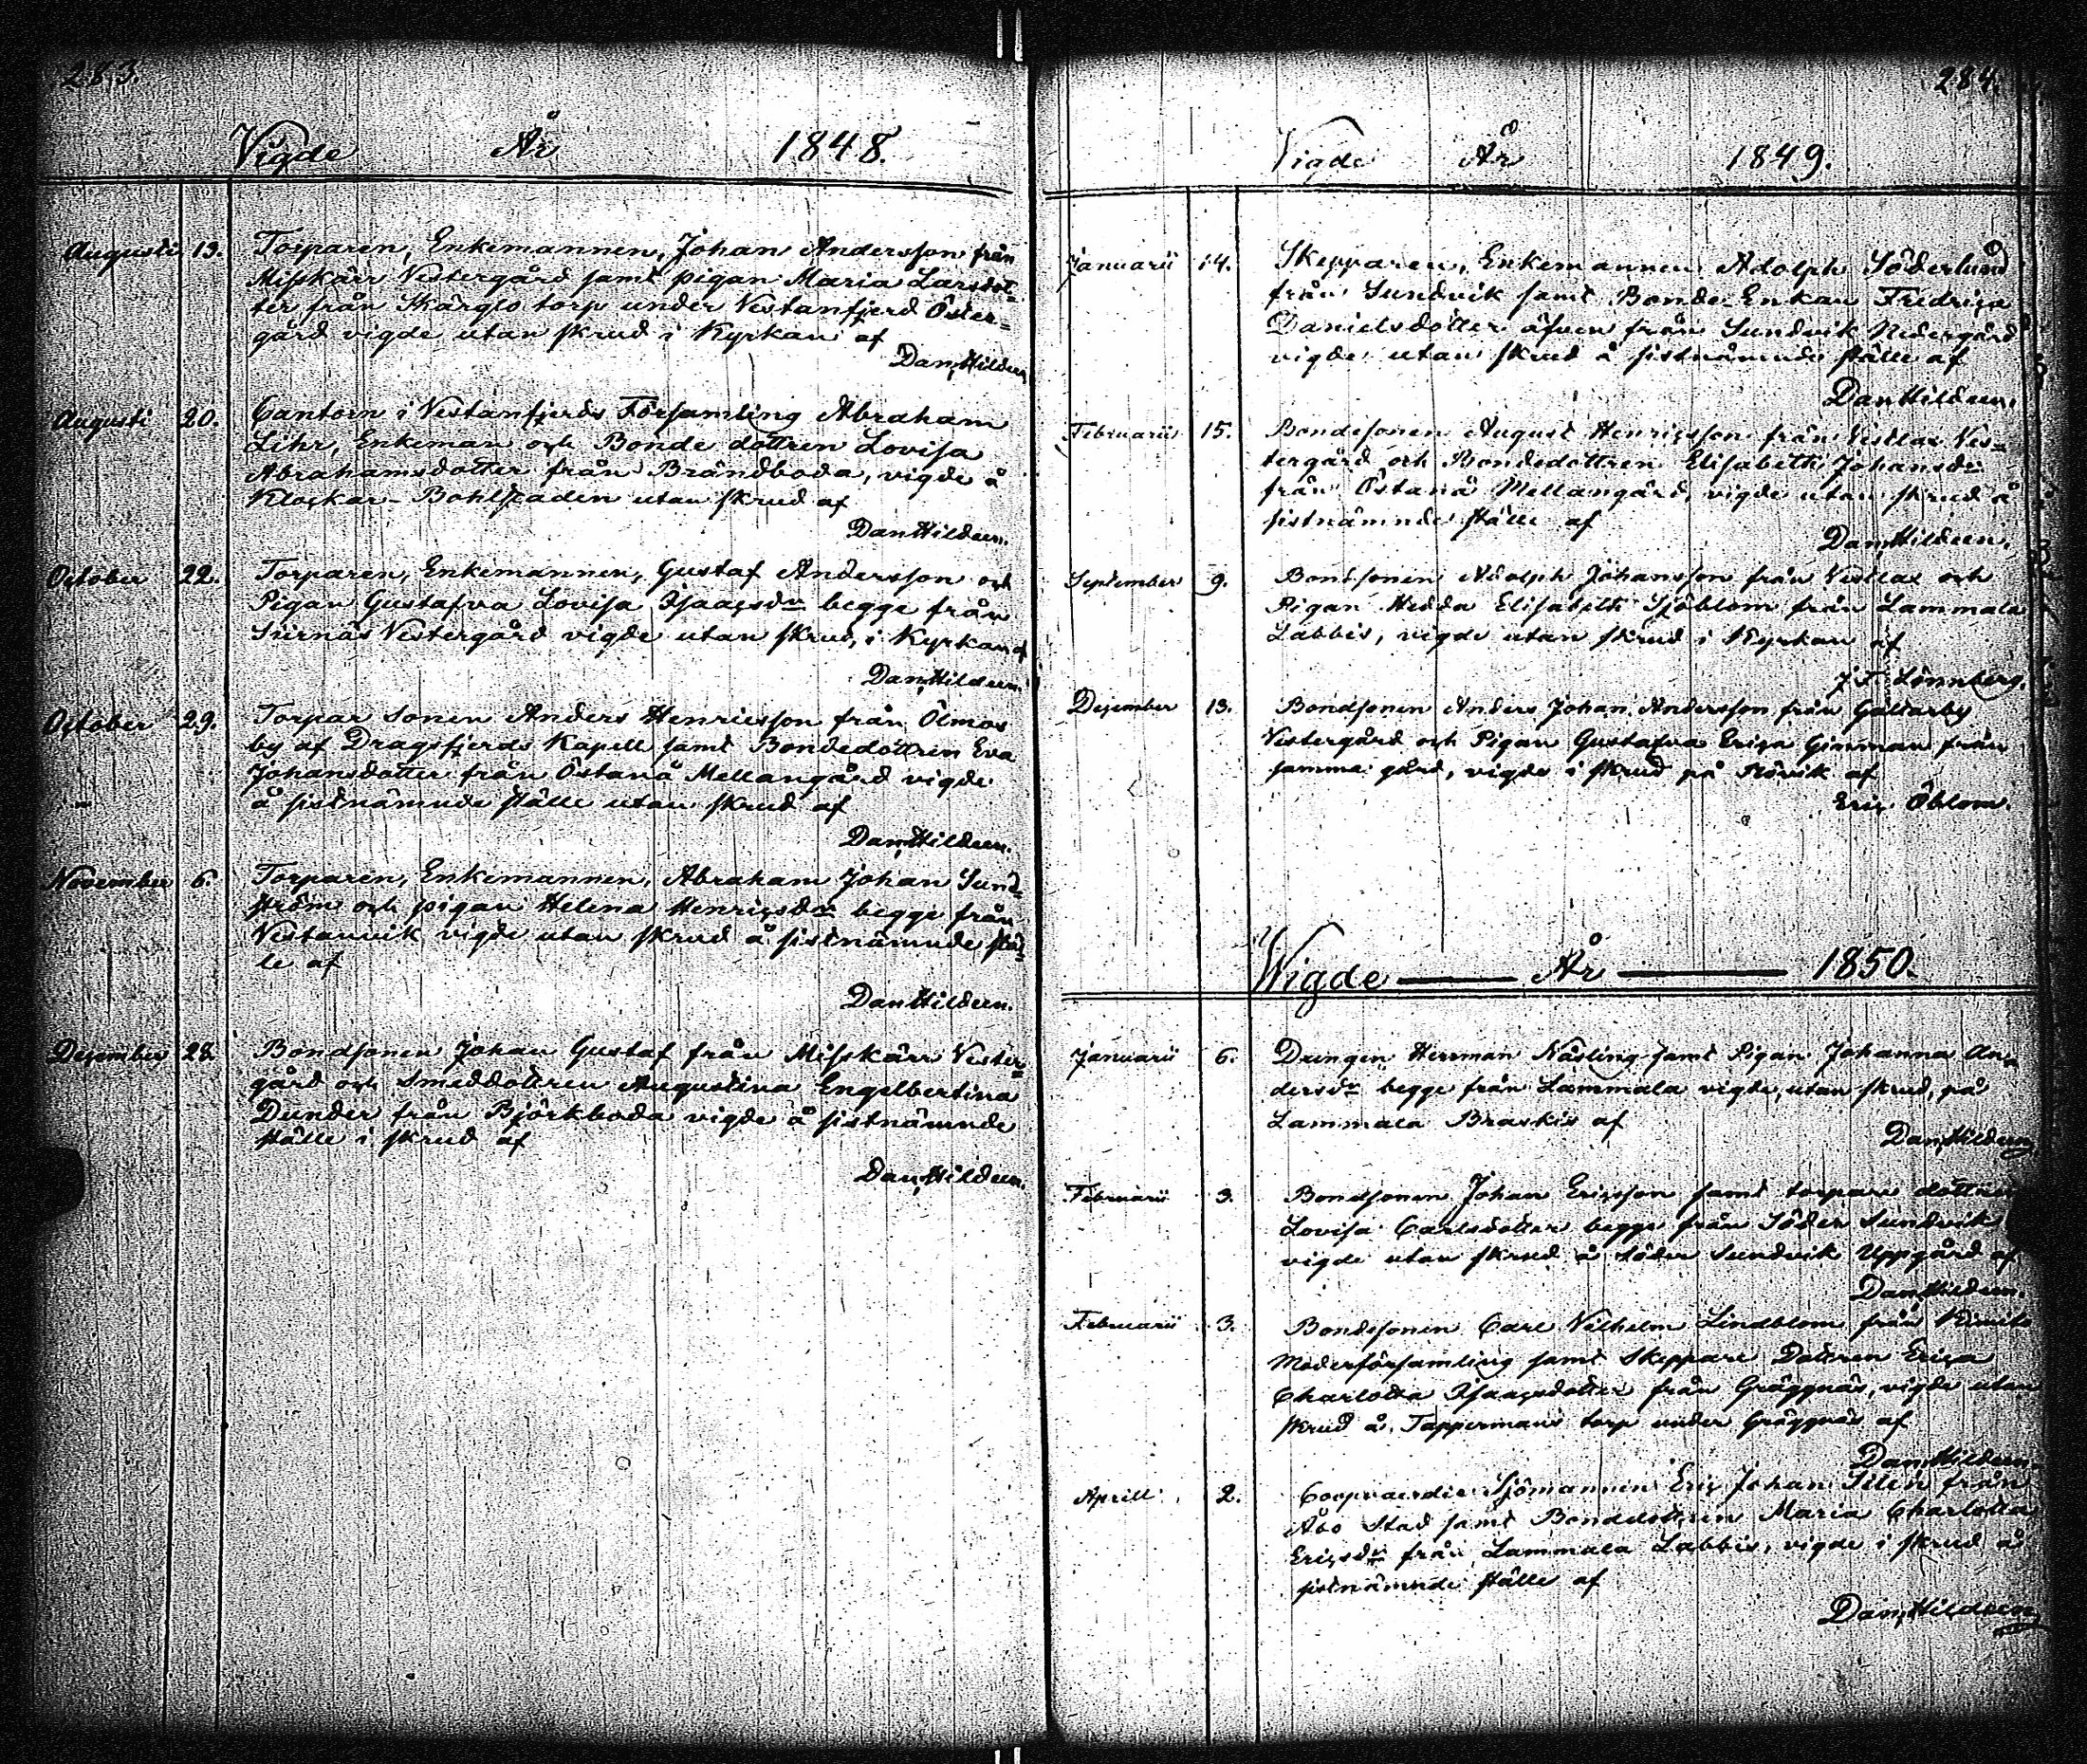 283.
Vigde År 1848.
Augusti 13. Torparen, Enkemannen, Johan Andersson från
Misskärr Vestergård samt pigan Maria Larsdot=
ter från Skärglo torp under Vestanfjerd Öster=
gård vigde utan skrud i Kyrkan af
Dan. Hildeen
Augusti 20. Cantorn i Vestanfjerds Församling Abraham
Lihr, Enkeman och Bonde dottren Lovisa
Abrahamsdotter från Brändboda, vigde å
Klockar-Bohlstaden utan skrud af
Dan Hildeen.
October 22. Torparen, Enkemannen, Gustaf Andersson och
Pigan Gustafva Lovisa Isaacsdr begge från
Siirnäs Vestergård vigde utan skrud, i Kyrkan af
Dan. Hildeen.
October 29. Torpar Sonen Anders Henricsson från Ölmos
by af Dragsfjerds Kapell samt Bondedottren Eva
Johansdotter från Östanå Mellangård vigde
å sistnämnde ställe utan skrud af
Dan. Hildeen.
November 6. Torparen, Enkemannen, Abraham Johan Sund=
ström och pigan Helena Henricsdr begge från
Vestanvik vigde utan skrud å sistnämnde stäl=
le af
Dan Hildeen.
December 28. Bondsonen Johan Gustaf från Misskärr Vester=
gård och Smeddottren Augustina Engelbertina
Dunder från Björkboda vigde å sistnämnde
ställe i skrud af
Dan. Hildeen.
284.
Vigde År 1849.
Januarii 14. Skepparen, Enkemannen Adolph Söderlund
från Sundvik samt Bonde Enkan Fredrica
Danielsdotter äfven från Sundvik Nedergård
vigde utan skrud å sistnämnde ställe af
Dan Hildeen.
Februarii 15. Bondesonen August Henricsson från Vestlax Ves=
tergård och Bondedottren Elisabeth Johansdr
från Östanå Mellangård, vigde utan skrud å
sistnämnde ställe af
Dan. Hildeen.
September 9. Bondsonen Adolph Johansson från Vestlax och
Pigan Hedda Elisabeth Sjöblom från Lammala
Labbis, vigde utan skrud i Kyrkan af
J. F. Lönnberg.
December 13. Bondsonen Anders Johan Andersson från Galtarby
Vestergård och Pigan Gustafva Erica Ginman från
samma gård, vigde i skrud på Rövik af
Eric Öblom.
Wigde — År — 1850.
Januarii 6. Drängen Herrman Nåsling samt Pigan Johanna An=
dersdr begge från Lammala vigde, utan skrud, på
Lammala Braskis af
Dan. Hildeen
Februarii 3. Bondsonen Johan Ericsson samt torpare dottren
Lovisa Carlsdotter begge från Söder Sundvik
vigde utan skrud å Söder Sundvik Uppgård af
Dan. Hildeen.
Februarii 3. Bondesonen Carl Vilhelm Lindblom från Kimito
Moderförsamling samt Skeppare Dottren Erica
Charlotta Isaacsdotter från Gräggnäs, vigde utan
skrud å Tappermans torp under Gräggnäs af
Dan. Hildeen.
Aprill 2. Coopvaerdie Sjömannen Eric Johan Silén från
Åbo Stad samt Bondedottren Maria Charlotta
Ericsdr från Lammala Labbis, vigde i skrud å
sistnämnde ställe af
Dan. Hildeen